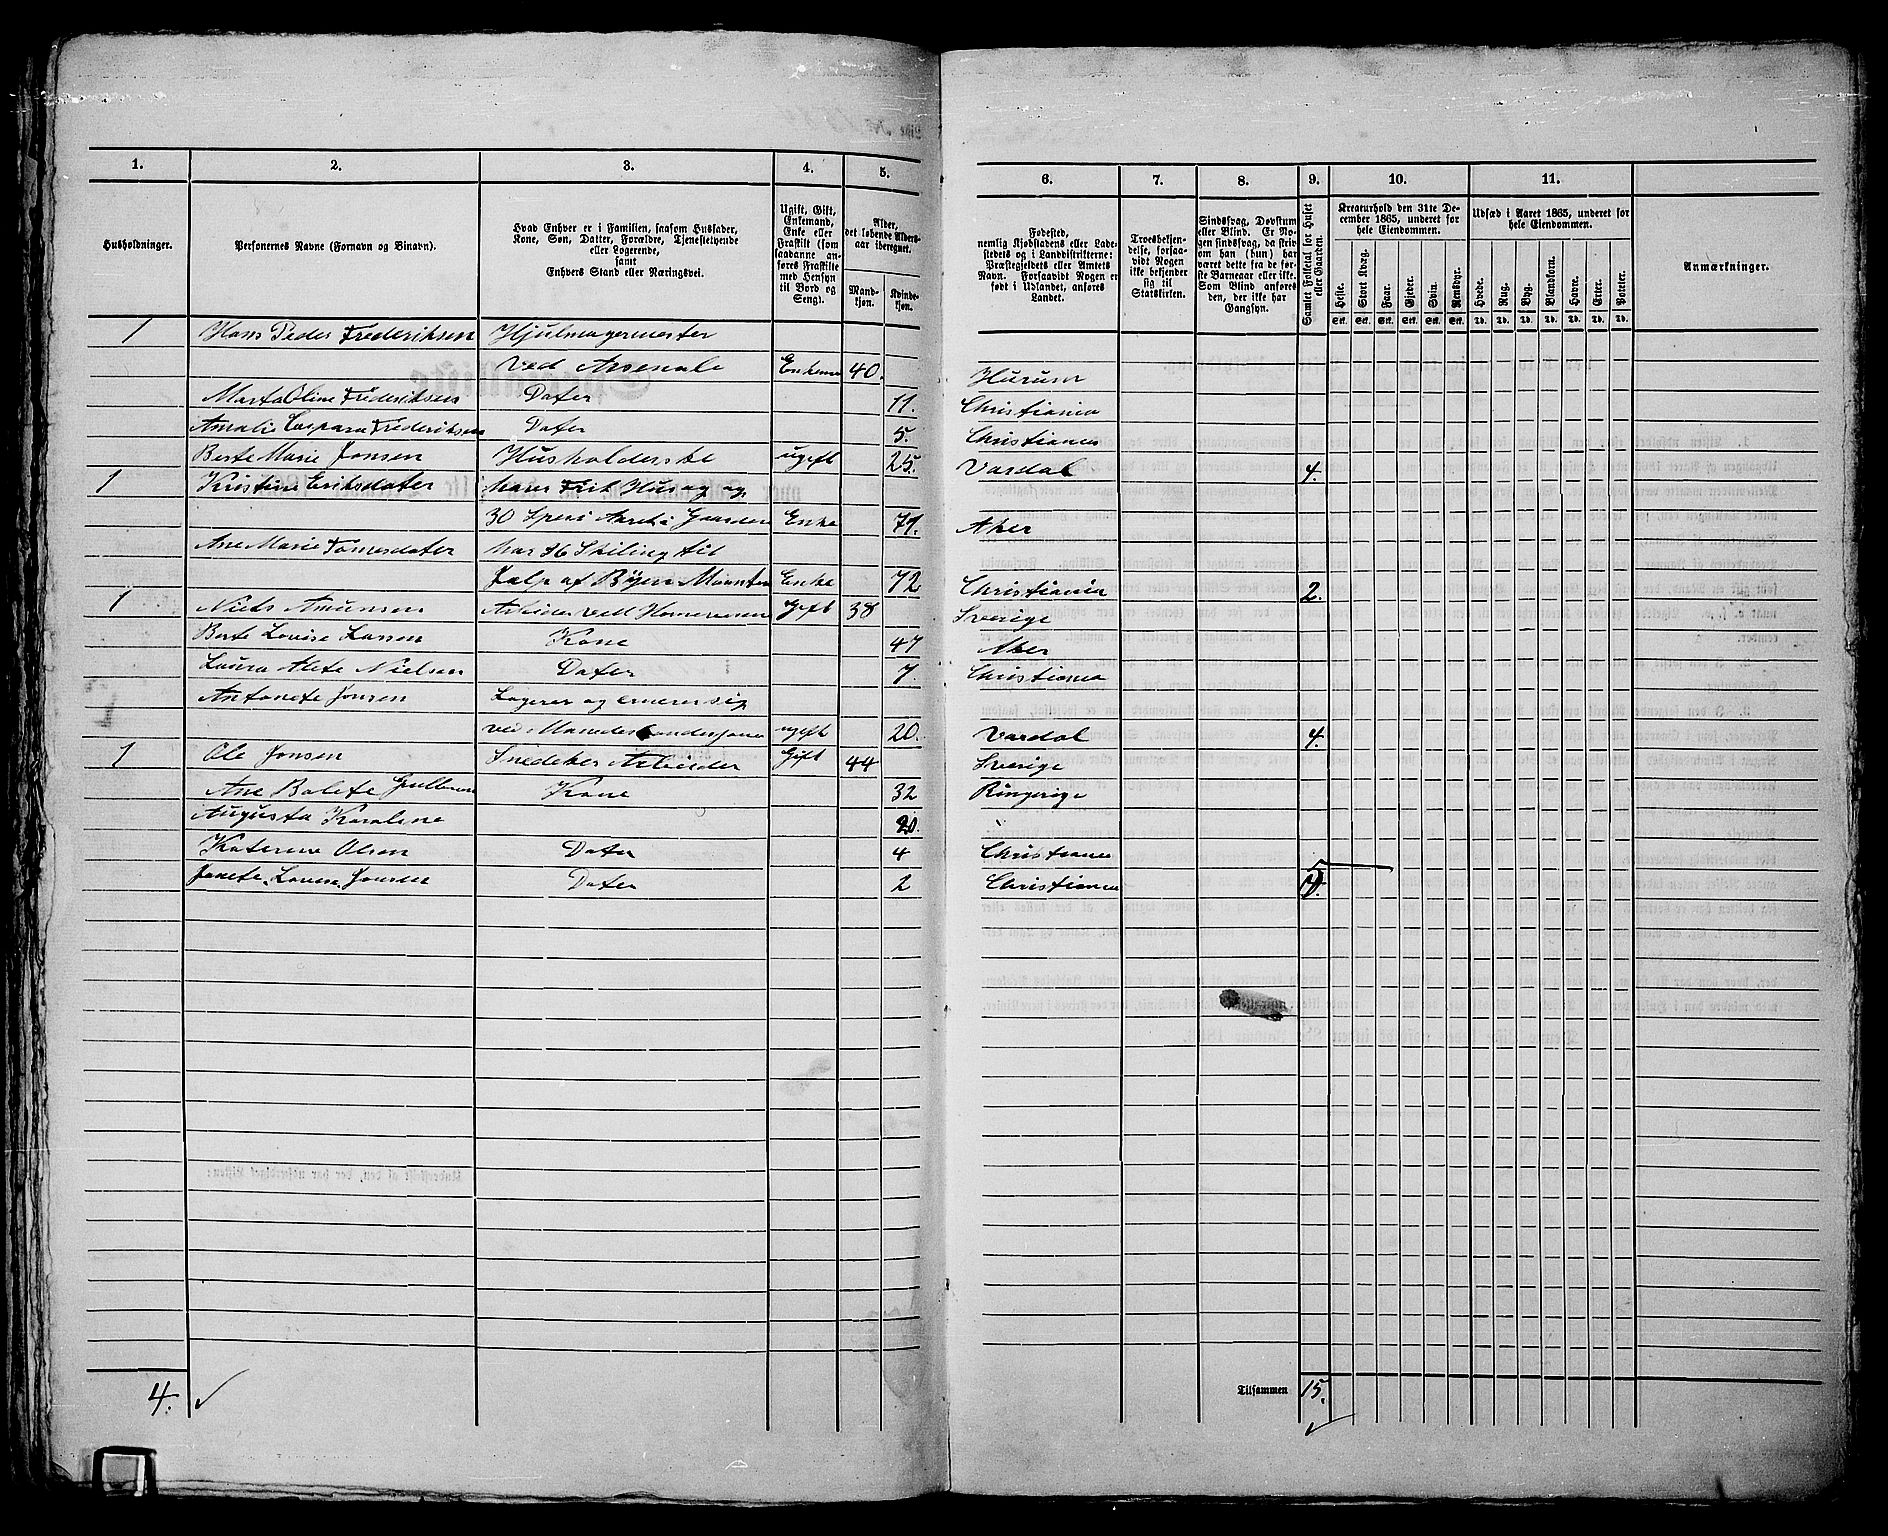 1. 2. 3. 4. 5.
Husholdninger.
Personernes Navne (Fornavn og Binavn).
Hvad Enhver er i Familien, saasom Husfader,
Kone, Søn, Datter, Forældre, Tjenestetyende
eller Logerende,
samt
Enhvers Stand eller Næringsvei.
Ugift, Gift,
Enkemand,
Enke eller
Fraskilt (som
saadanne an-
føres Fraskilte
med Hensyn
til Bord og
Seng).
Alder,
det løbende Alders-
aar iberegnet.
Mand-
kjøn.
Kvinde-
kjøn.
1 Hans Peder Frederiksen Hjulmagermester
ved Arsenale Enkem 40.
Marta Oline Frederiksen Dater 11.
Amalie Caspara Frederiksen Dater 5.
Berte Marie Jonsen Husholderske ugeft 25.
1 Kristine Eriksdater har Frit Hus og
30 Enke 71.
Ane Marie Tomesdater har 36 Skiling til
Jalp af Byen Enke 72
1 Niels Amunsen Arbeider ved Gift 38
Berte Lovise Larsen Kone 47
Laura Alete Nielsen Dater 7.
Antonete Jonsen Logerer og ernerer sig
ved ugeft 20.
1 Ole Jonsen Snedeker Arbeider Gift 44
Ane Bolete Kone 32
Augusta Karoline 20.
Katerine Olsen Dater 4
Janete Lovise Jonsen Dater 2
4.
6. 7. 8. 9. 10. 11.
Fødested,
nemlig Kjøbstadens eller Lade-
stedets og i Landdistrikterne:
Præstegjeldets eller Amtets
Navn. Forsaavidt Nogen er
født i Udlandet, anføres
Landet.
Troesbekjen-
delse, forsaa-
vidt Nogen
ikke bekjender
sig til
Statskirken.
Sindssvag, Døvstum
eller Blind. Er No-
gen sindssvag, da skri-
ves om han (hun) har
været dette fra de før-
ste Barneaar eller ikke.
Som Blind anføres
den, der ikke har
Gangsyn.
Samlet Folketal for Huset
eller Gaarden.
Kreaturhold den 31te De-
cember 1865, underet for
hele Eiendommen.
Heste. Stort Kvæg. Faar. Gjeder. Svin. Rensdyr.
Stk. Stk. Stk. Stk. Stk. Stk.
Udsæd i Aaret 1865, underet for
hele Eiendommen.
Hvede. Rug. Byg. Blandkorn. Havre. Erter. Poteter.
Td. Td. Td. Td. Td. Td. Td.
Anmærkninger.
Hurum
Christiania
Christiania
Vardal 4.
Aker
Christiania 2.
Sverige
Aker
Christiania
Vardal 4.
Sverige
Ringerige
Christiania
Christiania 5
Tilsammen 15.